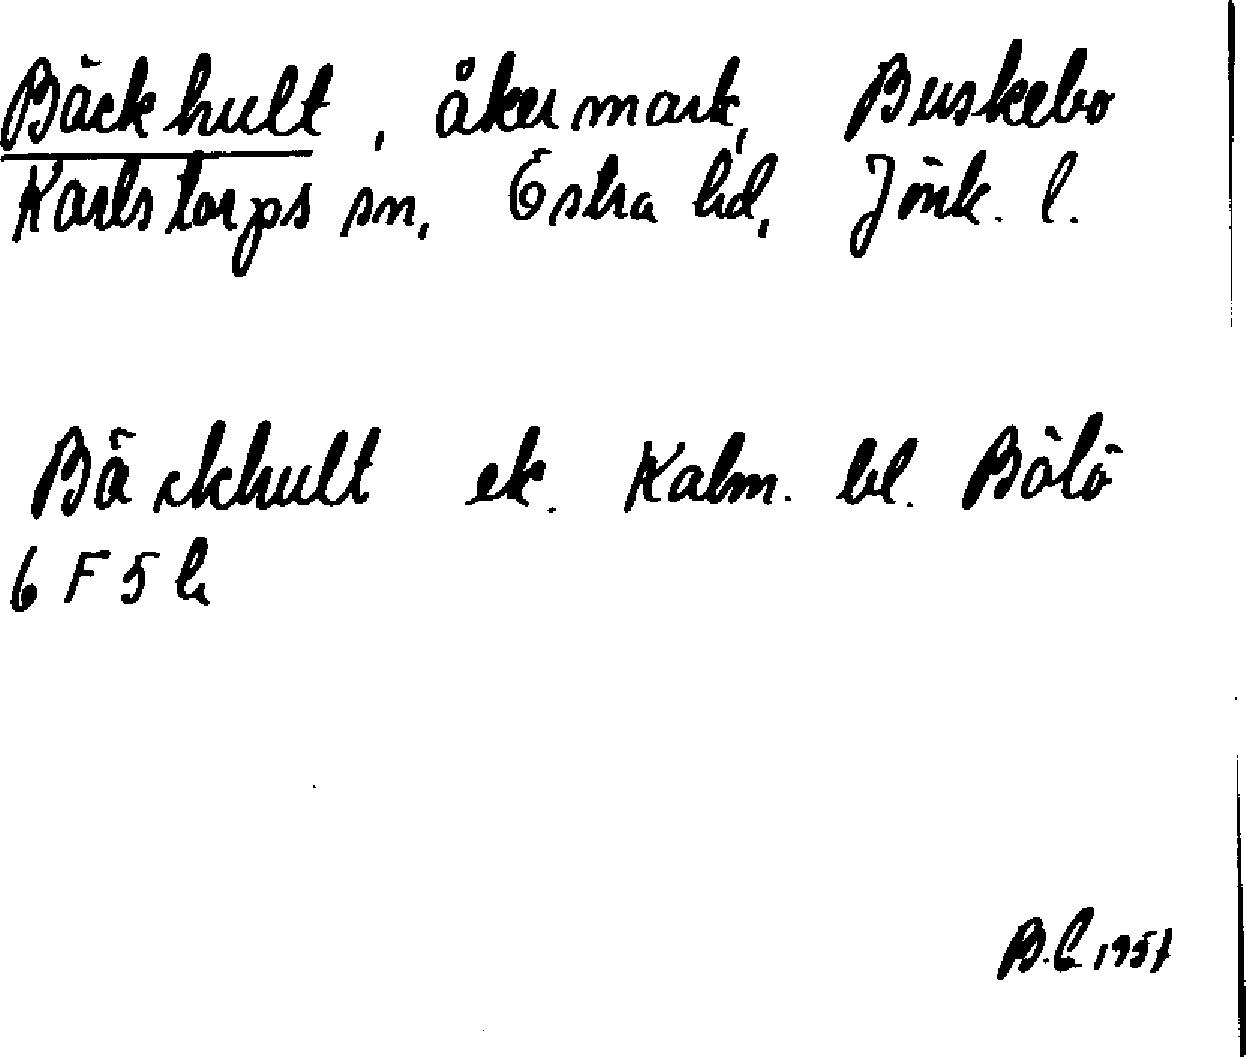 Bäckhult, åkermark, Buskebo
Karlstorps sn, Östra hd, Jönk. l.
Bäckhult ek. Kalm. bl. Bölö
6 F 5 h
B.L. 1957